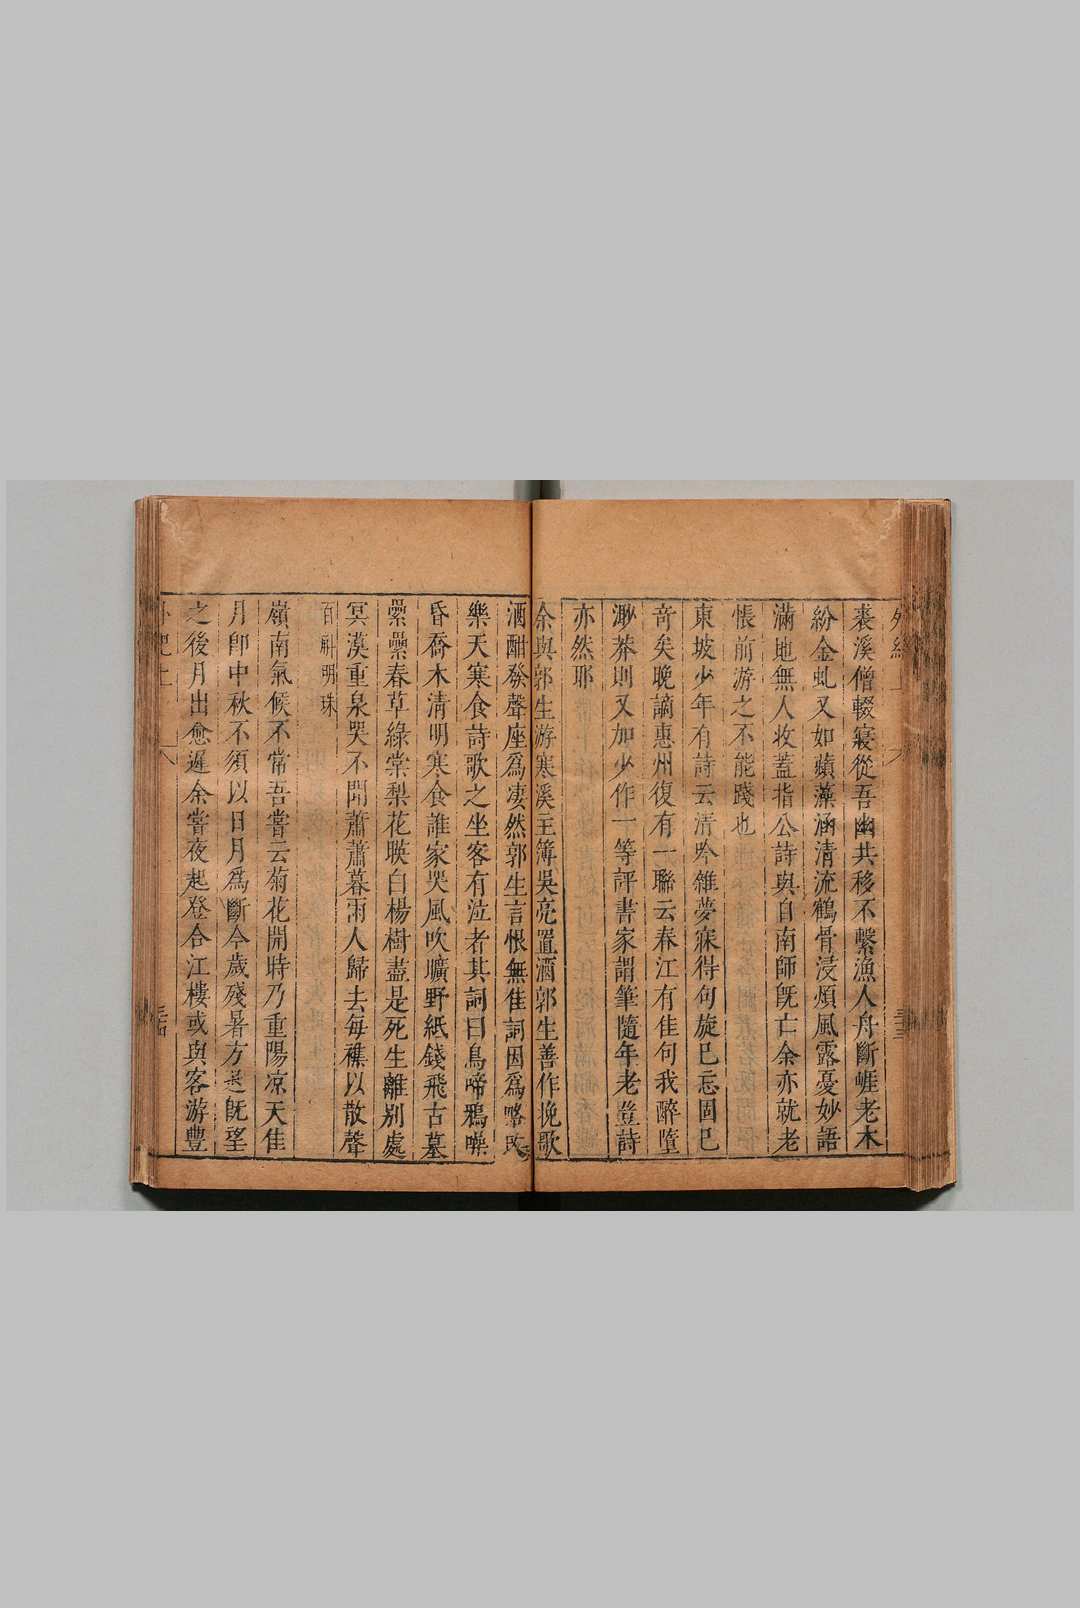 裘溪僧輟寢從吾幽共移不繫漁人舟斷崕老木
紛金虬又如蘋藻涵清流鶴骨浸煩風露憂妙語
滿地無人收蓋指公詩與自南師旣亡余亦就老
悵前游之不能踐也
東坡少年有詩云清吟雜夢寐得句旋已忘固已
竒矣晚謫惠州復有一聯云春江有佳句我醉墮
渺莽則又加少作一等評書家謂筆隨年老豈詩
亦然耶
余與郭生游寒溪主簿吳亮置酒郭生善作挽歌
酒酣發聲座爲凄然郭生言恨無佳詞因爲略改
樂天寒食詩歌之坐客有泣者其詞曰鳥啼鴉噪
昏喬木清明寒食誰家哭風吹曠野紙錢飛古墓
纍纍春草綠棠梨花暎白楊樹盡是死生離別處
冥漠重泉哭不聞蕭蕭暮雨人歸去每襍以散聲
百斛明珠
嶺南氣候不常吾嘗云菊花開時乃重陽凉天佳
月即中秋不須以日月爲斷今歲殘暑方退旣望
之後月出愈遲余嘗夜起登合江樓或與客游豐